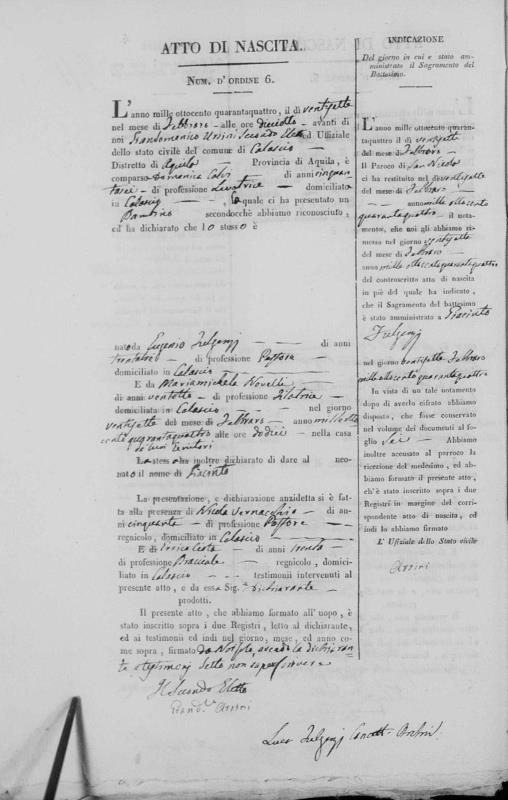 ATTO DI NASCITA.
NUM. D'ORDINE 6.
L'anno mille ottocento quarantaquattro, il dì ventisette
nel mese di Febbraro - alle ore diciotto - avanti di
noi Giandomenico Ursini Secondo Eletto ed Uffiziale
dello stato civile del comune di Calascio
Distretto di Aquila Provincia di Aquila, è
comparsa Domenica di anni cinquan-
tasei - di professione Lavatrice - domiciliato
in Calascio la quale ci ha presentato un
Bambino secondochè abbiamo riconosciuto,
ed ha dichiarato che lo stesso è
nato da Eugenio Fulgenzj di anni
trentatre - di professione Pastore
domiciliato in Calascio
E da Mariamichela Novelli
di anni ventotto - di professione Filatrice
domiciliata in Calascio nel giorno
ventisette del mese di Febbraro - anno mille otto
cento quarantaquattro alle ore dodici - nella casa
di loro
La stessa ha inoltre dichiarato di dare al neo-
nato il nome di Giacinto
La presentazione, e dichiarazione anzidetta si è fat-
ta alla presenza di Nicola Vernacchio - di an-
ni cinquanta - di professione Pastore
regnicolo, domiciliato in Calascio
E di Errico Cesta - di anni trenta
di professione Bracciale regnicolo, domici-
liato in Calascio testimonii intervenuti al
presente atto, e da essa Sig.ª dichiarante
prodotti.
Il presente atto, che abbiamo formato all'uopo, è
stato inscritto sopra i due Registri, letto al dichiarante,
ed ai testimonii ed indi nel giorno, mese, ed anno co-
me sopra, firmato da Noi solo, avendo la dichiaran-
te e testimonj detto non saper scrivere
Il Secondo Eletto
Giand.co Ursini
INDICAZIONE
Del giorno in cui è stato am-
ministrato il Sagramento del
Battesimo.
L'anno mille ottocento quaran-
taquattro il dì ventisette
del mese di Febbraro
Il Paroco di San Nicola
ci ha restituito nel dì ventisette
del mese di Febbraro
anno mille ottocento
quarantaquattro - il nota-
mento, che noi gli abbiamo ri-
messo nel giorno ventisette
del mese di Febbraro
anno mille ottocento quarantaquattro
del controscritto atto di nascita
in piè del quale ha indicato,
che il Sagramento del battesimo
è stato amministrato a Giacinto
Fulgenzj
nel giorno ventisette Febbraro
mille ottocento quarantaquattro
In vista di un tale notamento
dopo di averlo cifrato abbiamo
disposto, che fosse conservato
nel volume dei documenti al fo-
glio sei - Abbiamo
inoltre accusato al parroco la
ricezione del medesimo, ed ab-
biamo formato il presente atto,
ch'è stato inscritto sopra i due
Registri in margine del corri-
spondente atto di nascita, ed
indi lo abbiamo formato
L' Uffiziale dello Stato civile
Ursini
Luca Fulgenzj